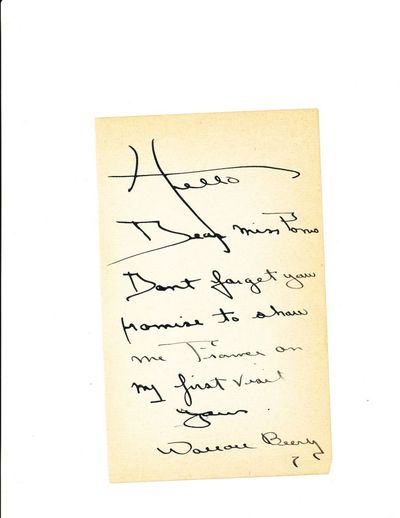 Hello
Dear Miss Pons
Dont forget your
promise to show
me France on
my first visit
yours
Wallace Beery